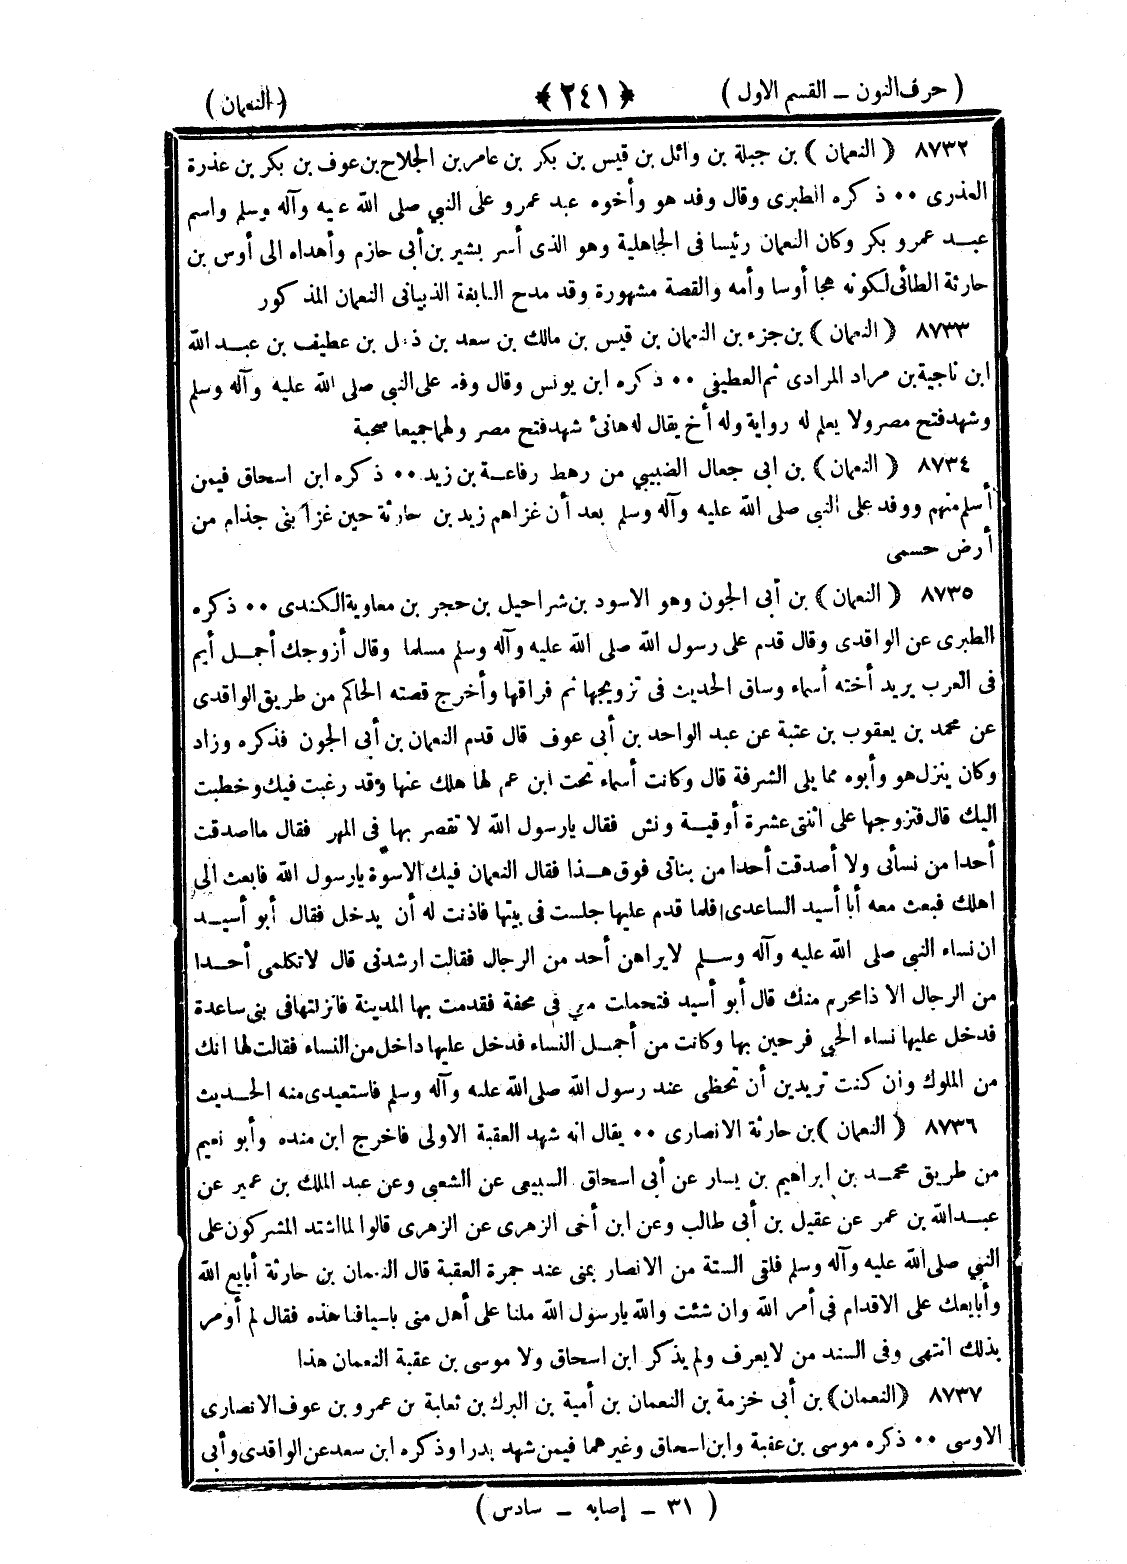 ( حرف النون ــ القسم الاول ) ﴿ ٢٤١ ﴾ ( النعمان )
٨٧٣٢ ( النعمان ) بن جبلة بن وائل بن قيس بن بكر بن عامر بن الجلاح بن عوف بن بكر بن عذرة
العذرى ٠٠ ذكره الطبرى وقال وفد هو وأخوه عبد عمرو على النبي صلى الله عليه وآله وسلم واسم
عبد عمرو بكر وكان النعمان رئيسا فى الجاهلية وهو الذى أسر بشير بن أبى حازم وأهداه الى أوس بن
حارثة الطائى لكونه هجا أوسا وأمه والقصة مشهورة وقد مدح النابغة الذبيانى النعمان المذكور
٨٧٣٣ ( النعمان ) بن جزء بن النعمان بن قيس بن مالك بن سعد بن ذهل بن عطيف بن عبد الله
ابن ناجية بن مراد المرادى ثم العطيفى ٠٠ ذكره ابن يونس وقال وفد على النبي صلى الله عليه وآله وسلم
وشهد فتح مصر ولا يعلم له رواية وله أخ يقال له هانئ شهد فتح مصر ولهما جميعا صحبة
٨٧٣٤ ( النعمان ) بن ابى جعال الضبيبي من رهط رفاعة بن زيد ٠٠ ذكره ابن اسحاق فيمن
أسلم منهم ووفد على النبي صلى الله عليه وآله وسلم بعد أن غزاهم زيد بن حارثة حين غزا بنى جذام من
أرض حسمى
٨٧٣٥ ( النعمان ) بن أبى الجون وهو الاسود بن شراحيل بن حجر بن معاوية الكندى ٠٠ ذكره
الطبرى عن الواقدى وقال قدم على رسول الله صلى الله عليه وآله وسلم مسلما وقال أزوجك أجمل أيم
فى العرب يريد أخته أسماء وساق الحديث فى تزويجها ثم فراقها وأخرج قصته الحاكم من طريق الواقدى
عن محمد بن يعقوب بن عتبة عن عبد الواحد بن أبى عوف قال قدم النعمان بن أبي الجون فذكره وزاد
وكان ينزل هو وأبوه مما يلى الشرفة قال وكانت أسماء تحت ابن عم لها هلك عنها وقد رغبت فيك وخطبت
اليك قال فتزوجها على اثنتى عشرة أوقية ونش فقال يارسول الله لا تقصر بها فى المهر فقال ما اصدقت
أحدا من نسائى ولا أصدقت أحدا من بناتى فوق هذا فقال النعمان فيك الاسوة يارسول الله فابعث الى
اهلك فبعث معه أبا أسيد الساعدى فلما قدم عليها جلست فى بيتها فاذنت له أن يدخل فقال أبو أسيد
ان نساء النبي صلى الله عليه وآله وسلم لا يراهن أحد من الرجال فقالت ارشدنى قال لا تكلمى أحدا
من الرجال الا ذا محرم منك قال أبو أسيد فتحملت معي فى محفة فقدمت بها المدينة فانزلتها فى بنى ساعدة
فدخل عليها نساء الحي فرحين بها وكانت من أجمل النساء فدخل عليها داخل من النساء فقالت لها انك
من الملوك وان كنت تريدين أن تحظى عند رسول الله صلى الله عليه وآله وسلم فاستعيذى منه الحديث
٨٧٣٦ ( النعمان ) بن حارثة الانصارى ٠٠ يقال انه شهد العقبة الاولى فاخرج ابن منده وأبو نعيم
من طريق محمد بن ابراهيم بن يسار عن أبى اسحاق السبيعى عن الشعبى وعن عبد الملك بن عمير عن
عبد الله بن عمر عن عقيل بن أبي طالب وعن ابن أخى الزهرى عن الزهرى قالوا لما اشتد المشركون على
النبي صلى الله عليه وآله وسلم فلقى الستة من الانصار بمنى عند جمرة العقبة قال النعمان بن حارثة أبايع الله
وأبايعك على الاقدام فى أمر الله وان شئت والله يارسول الله ملنا على أهل منى باسيافنا هذه فقال لم أومر
بذلك انتهى وفى السند من لا يعرف ولم يذكر ابن اسحاق ولا موسى بن عقبة النعمان هذا
٨٧٣٧ ( النعمان ) بن أبى خزمة بن النعمان بن أمية بن البرك بن ثعلبة بن عمرو بن عوف الانصارى
الاوسى ٠٠ ذكره موسى بن عقبة وابن اسحاق وغيرهما فيمن شهد بدرا وذكره ابن سعد عن الواقدى وأبى
( ٣١ ــ إصابه ــ سادس )